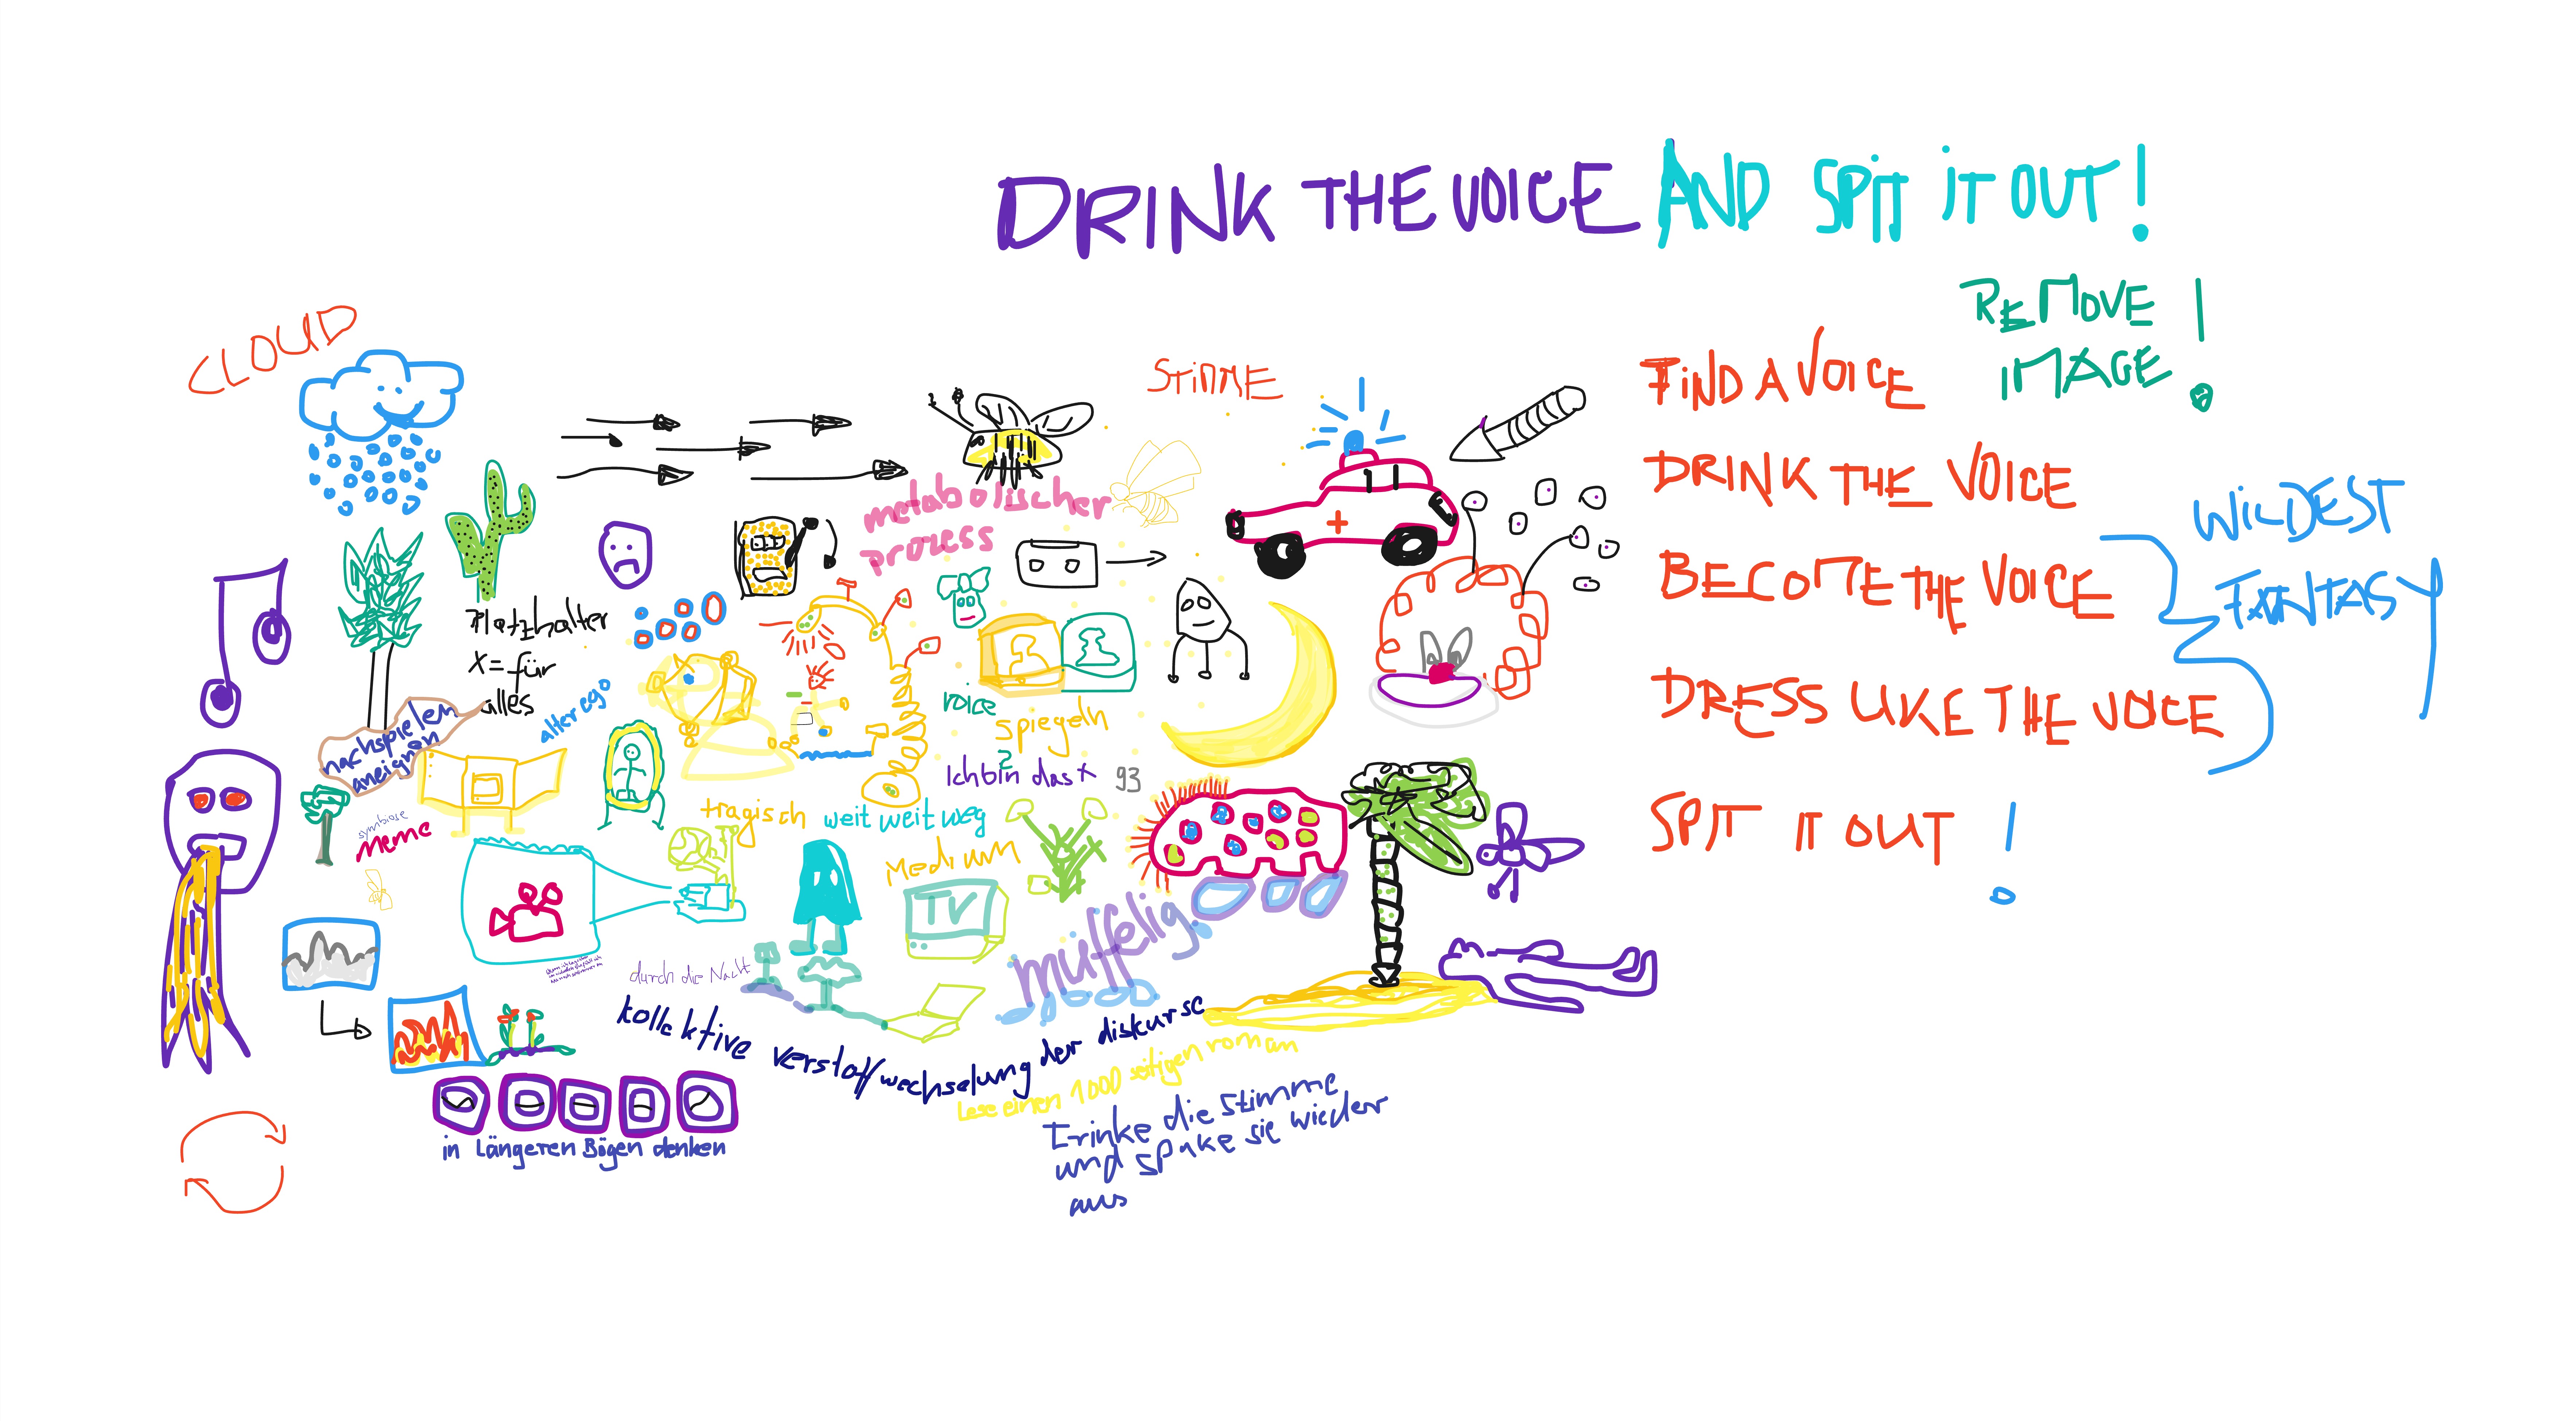 DRINK THE VOICE AND SPIT IT OUT!
REMOVE
IMAGE !
CLOUD
STIMME
FIND A VOICE
DRINK THE VOICE
BECOME THE VOICE
DRESS LIKE THE VOICE
SPIT IT OUT !
WILDEST
FANTASY
metabolischer
prozess
Platzhalter
X = für
alles
alter ego
nachspielen
aneignen
voice
spiegeln
Ich bin das x
2
93
symbiose
meme
tragisch
weit weit weg
Medium
TV
muffelig
durch die Nacht
kollektive verstoffwechselung der diskurse
Lese einen 1000 seitigen roman
in Längeren Bögen denken
trinke die stimme
und spuke sie wieder
aus